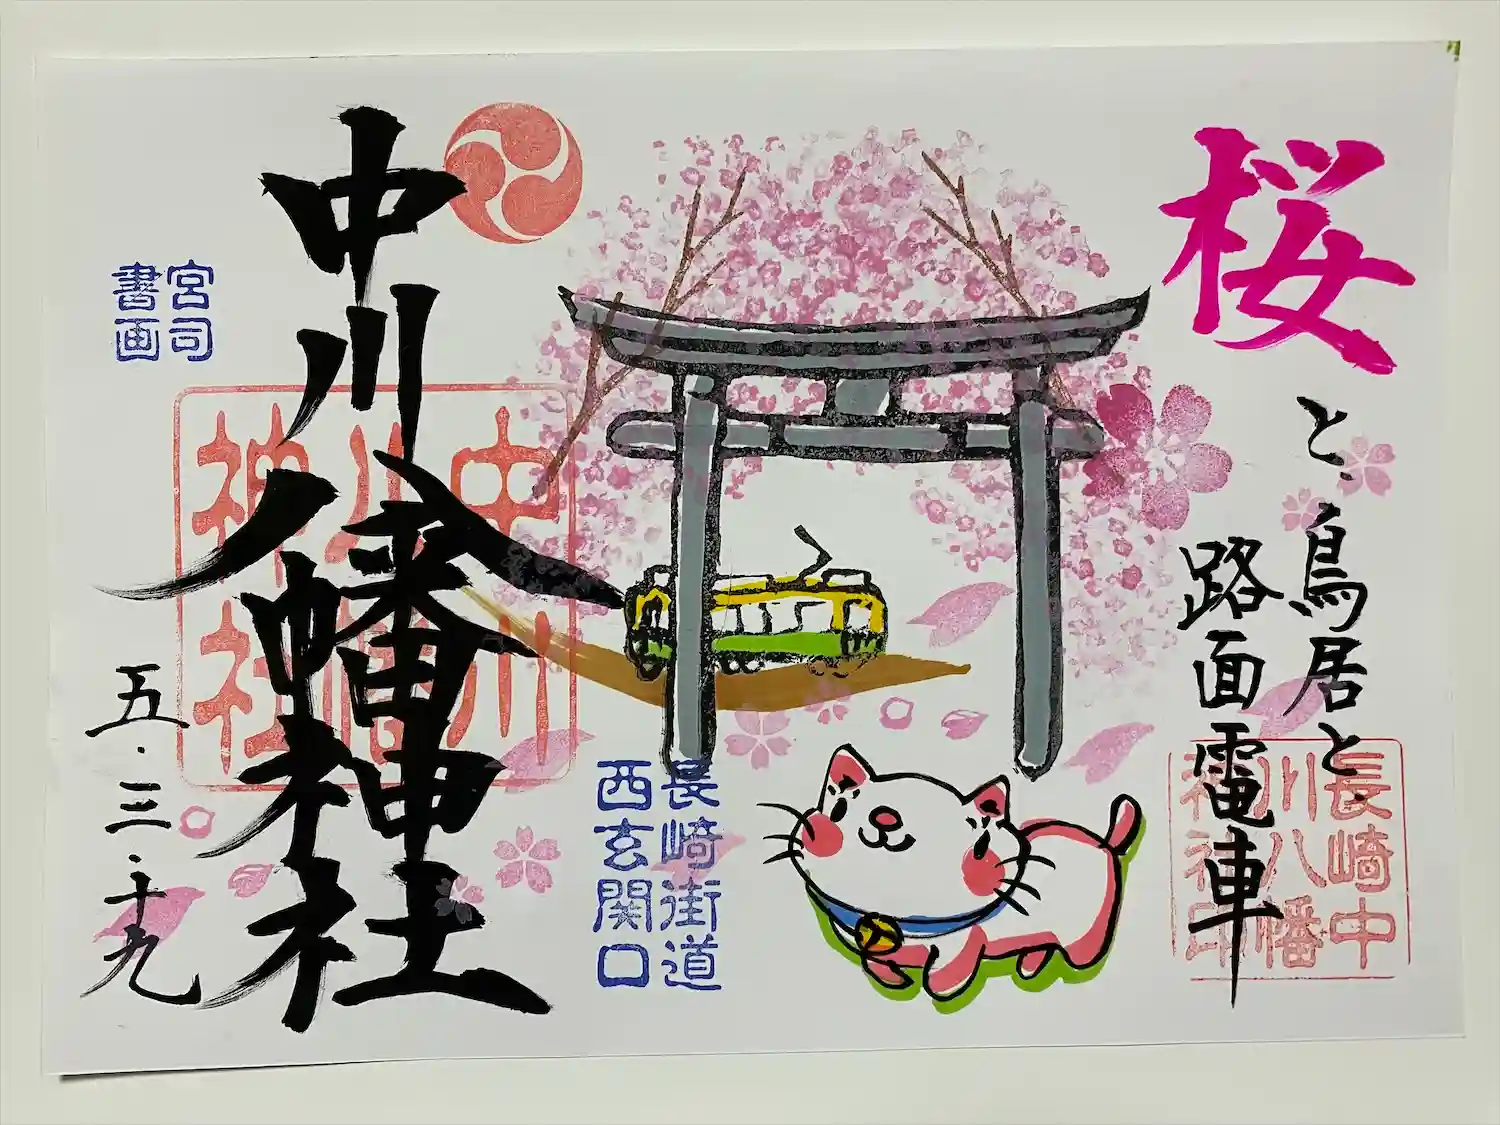 桜
と鳥居と
路面電車
長崎中
川八幡
神社印
長崎街道
西玄関口
中川八幡神社
中川
八幡
神社
宮司
書画
五・三・十九